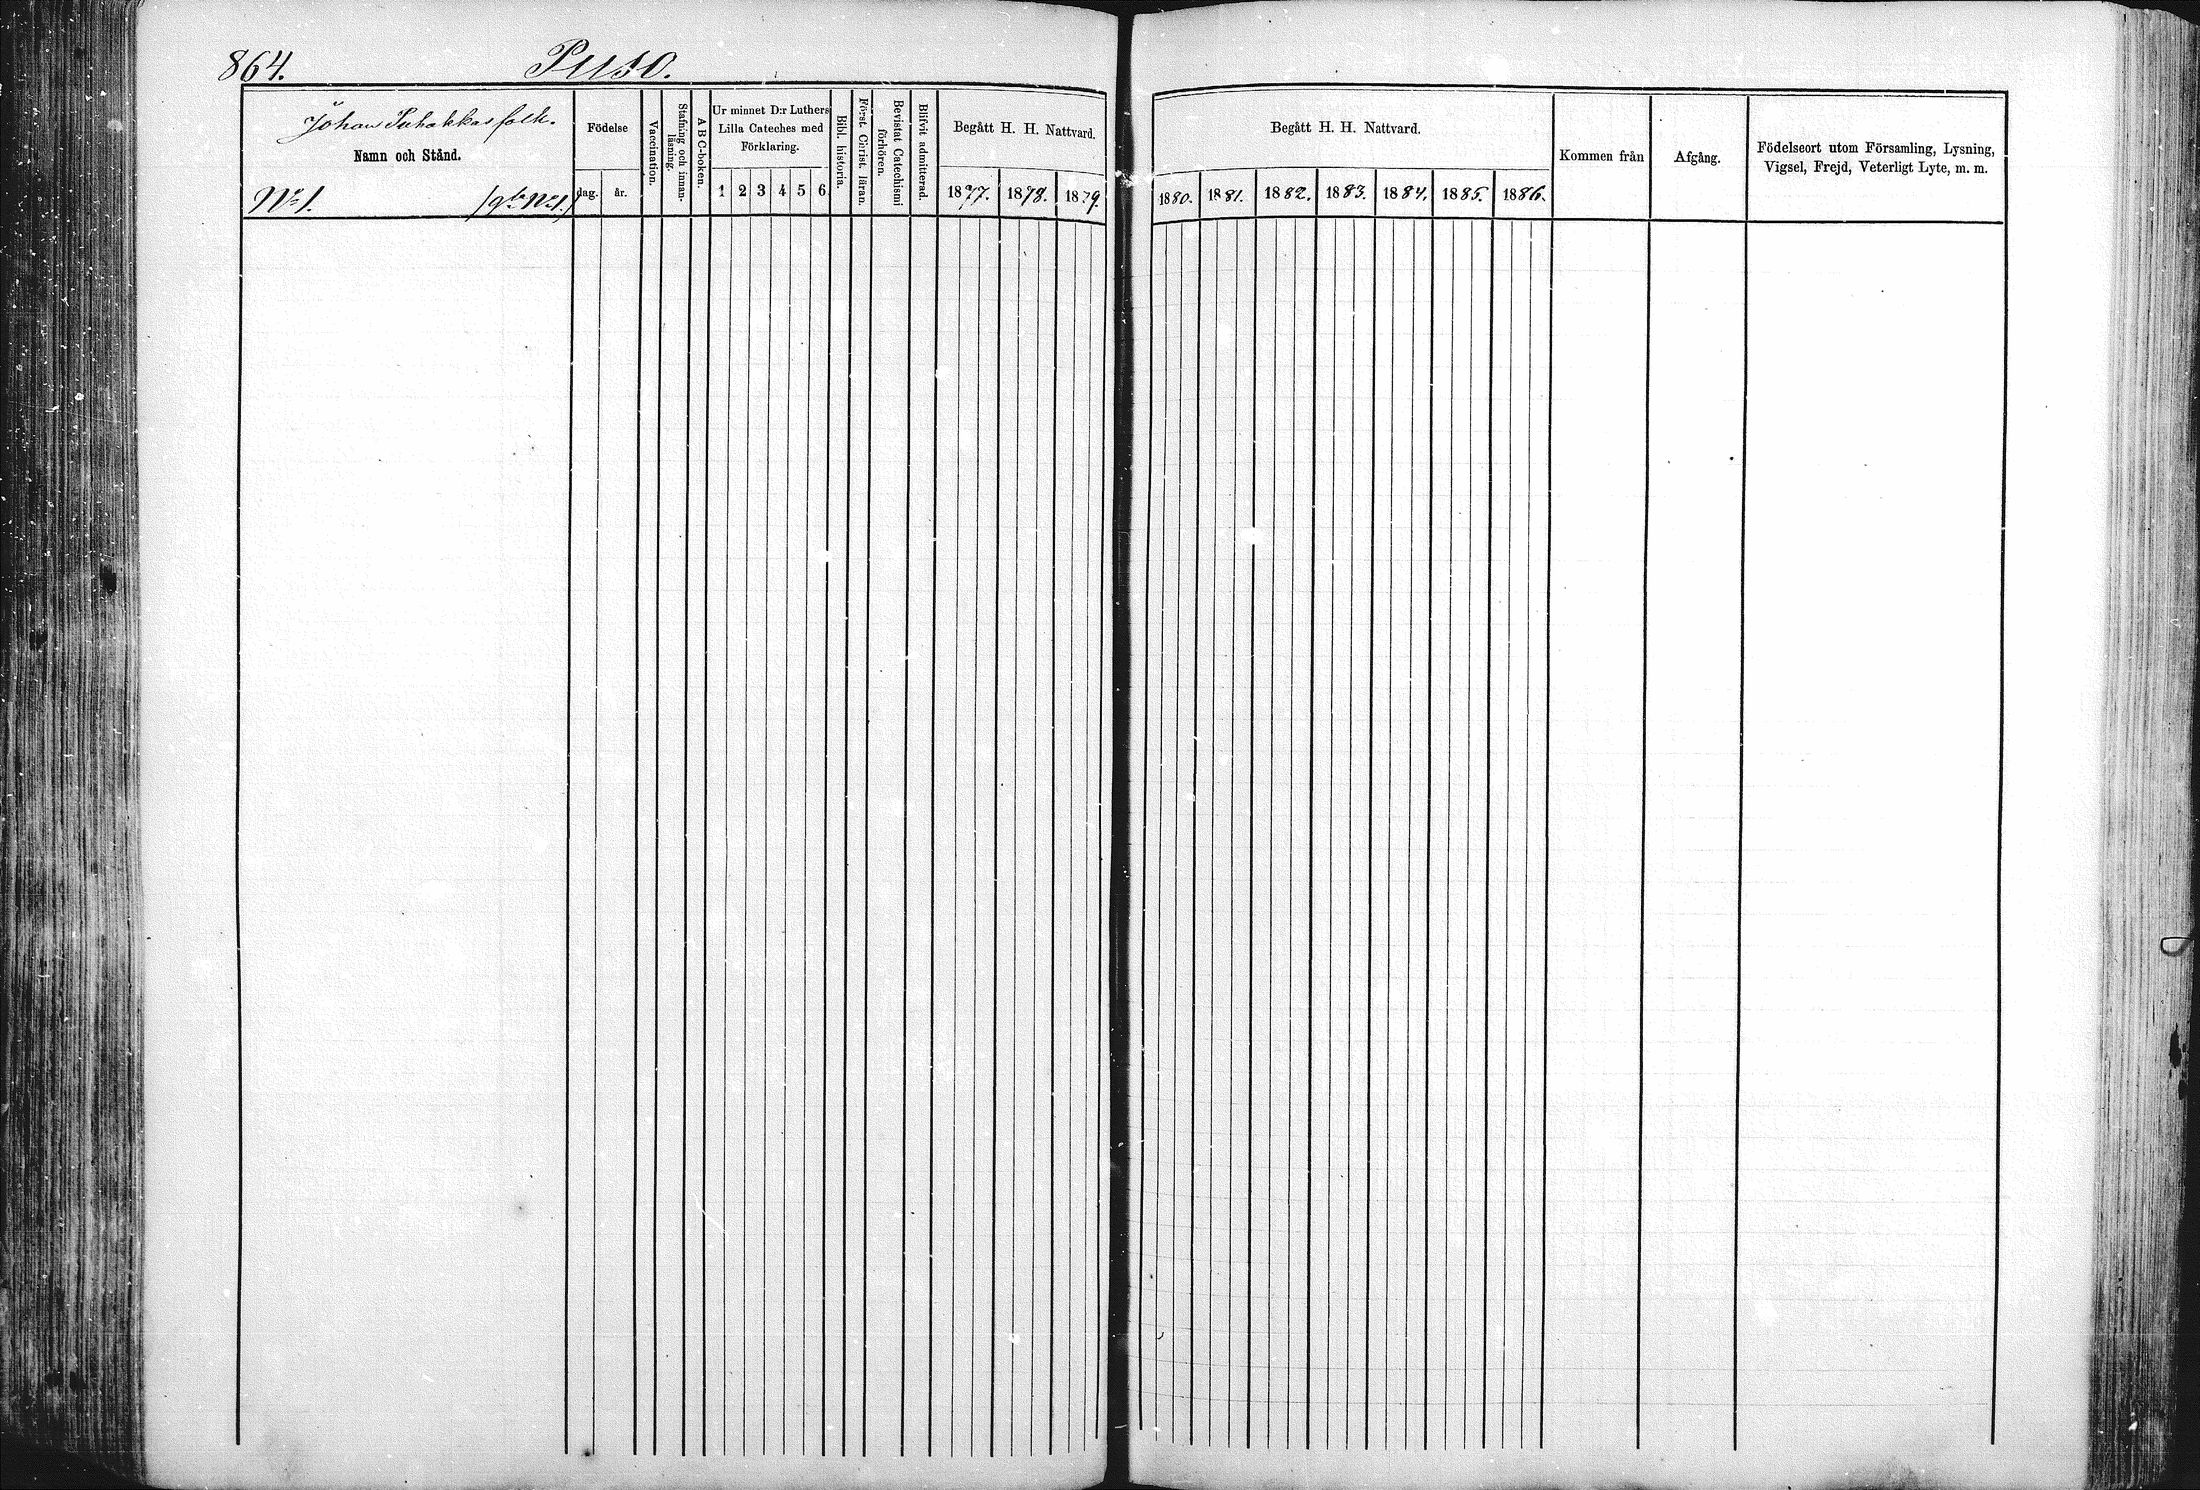 864. Puso.
Johan Puhakkas folk.
Namn och Stånd.
No 1. /gb No 1./
Födelse
dag. år.
Vaccination.
Stafning och innan-
läsning.
A B C-boken.
Ur minnet D:r Luthers
Lilla Cateches med
Förklaring.
1 2 3 4 5 6
Bibl. historia.
Först. Christ. läran.
Bevistat Catechismi
förhören.
Blifvit admitterad.
Begått H. H. Nattvard.
1877. 1878. 1879.
Begått H. H. Nattvard.
1880. 1881. 1882. 1883. 1884. 1885. 1886.
Kommen från
Afgång.
Födelseort utom Församling, Lysning,
Vigsel, Frejd, Veterligt Lyte, m. m.